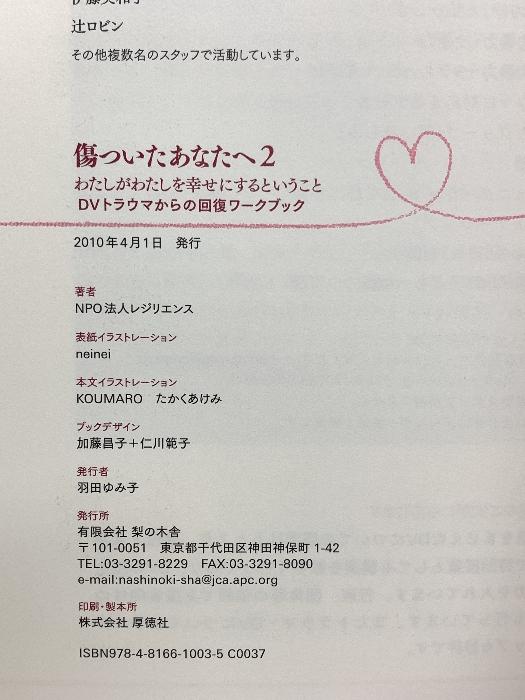 辻ロビン
その他複数名のスタッフで活動しています。
傷ついたあなたへ2
わたしがわたしを幸せにするということ
DVトラウマからの回復ワークブック
2010年4月1日　発行
著者
NPO法人レジリエンス
表紙イラストレーション
neinei
本文イラストレーション
KOUMARO　たかくあけみ
ブックデザイン
加藤昌子＋仁川範子
発行者
羽田ゆみ子
発行所
有限会社 梨の木舎
〒101-0051　東京都千代田区神田神保町 1-42
TEL:03-3291-8229　FAX:03-3291-8090
e-mail:nashinoki-sha@jca.apc.org
印刷・製本所
株式会社 厚徳社
ISBN978-4-8166-1003-5 C0037